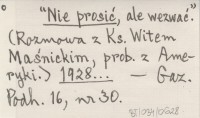 "Nie prosić, ale wezwać."
(Rozmowa z Ks. Witem
Maśnickim, prob. z Ame-
ryki.) 1928... — Gaz.
Podh. 16, nr 30.